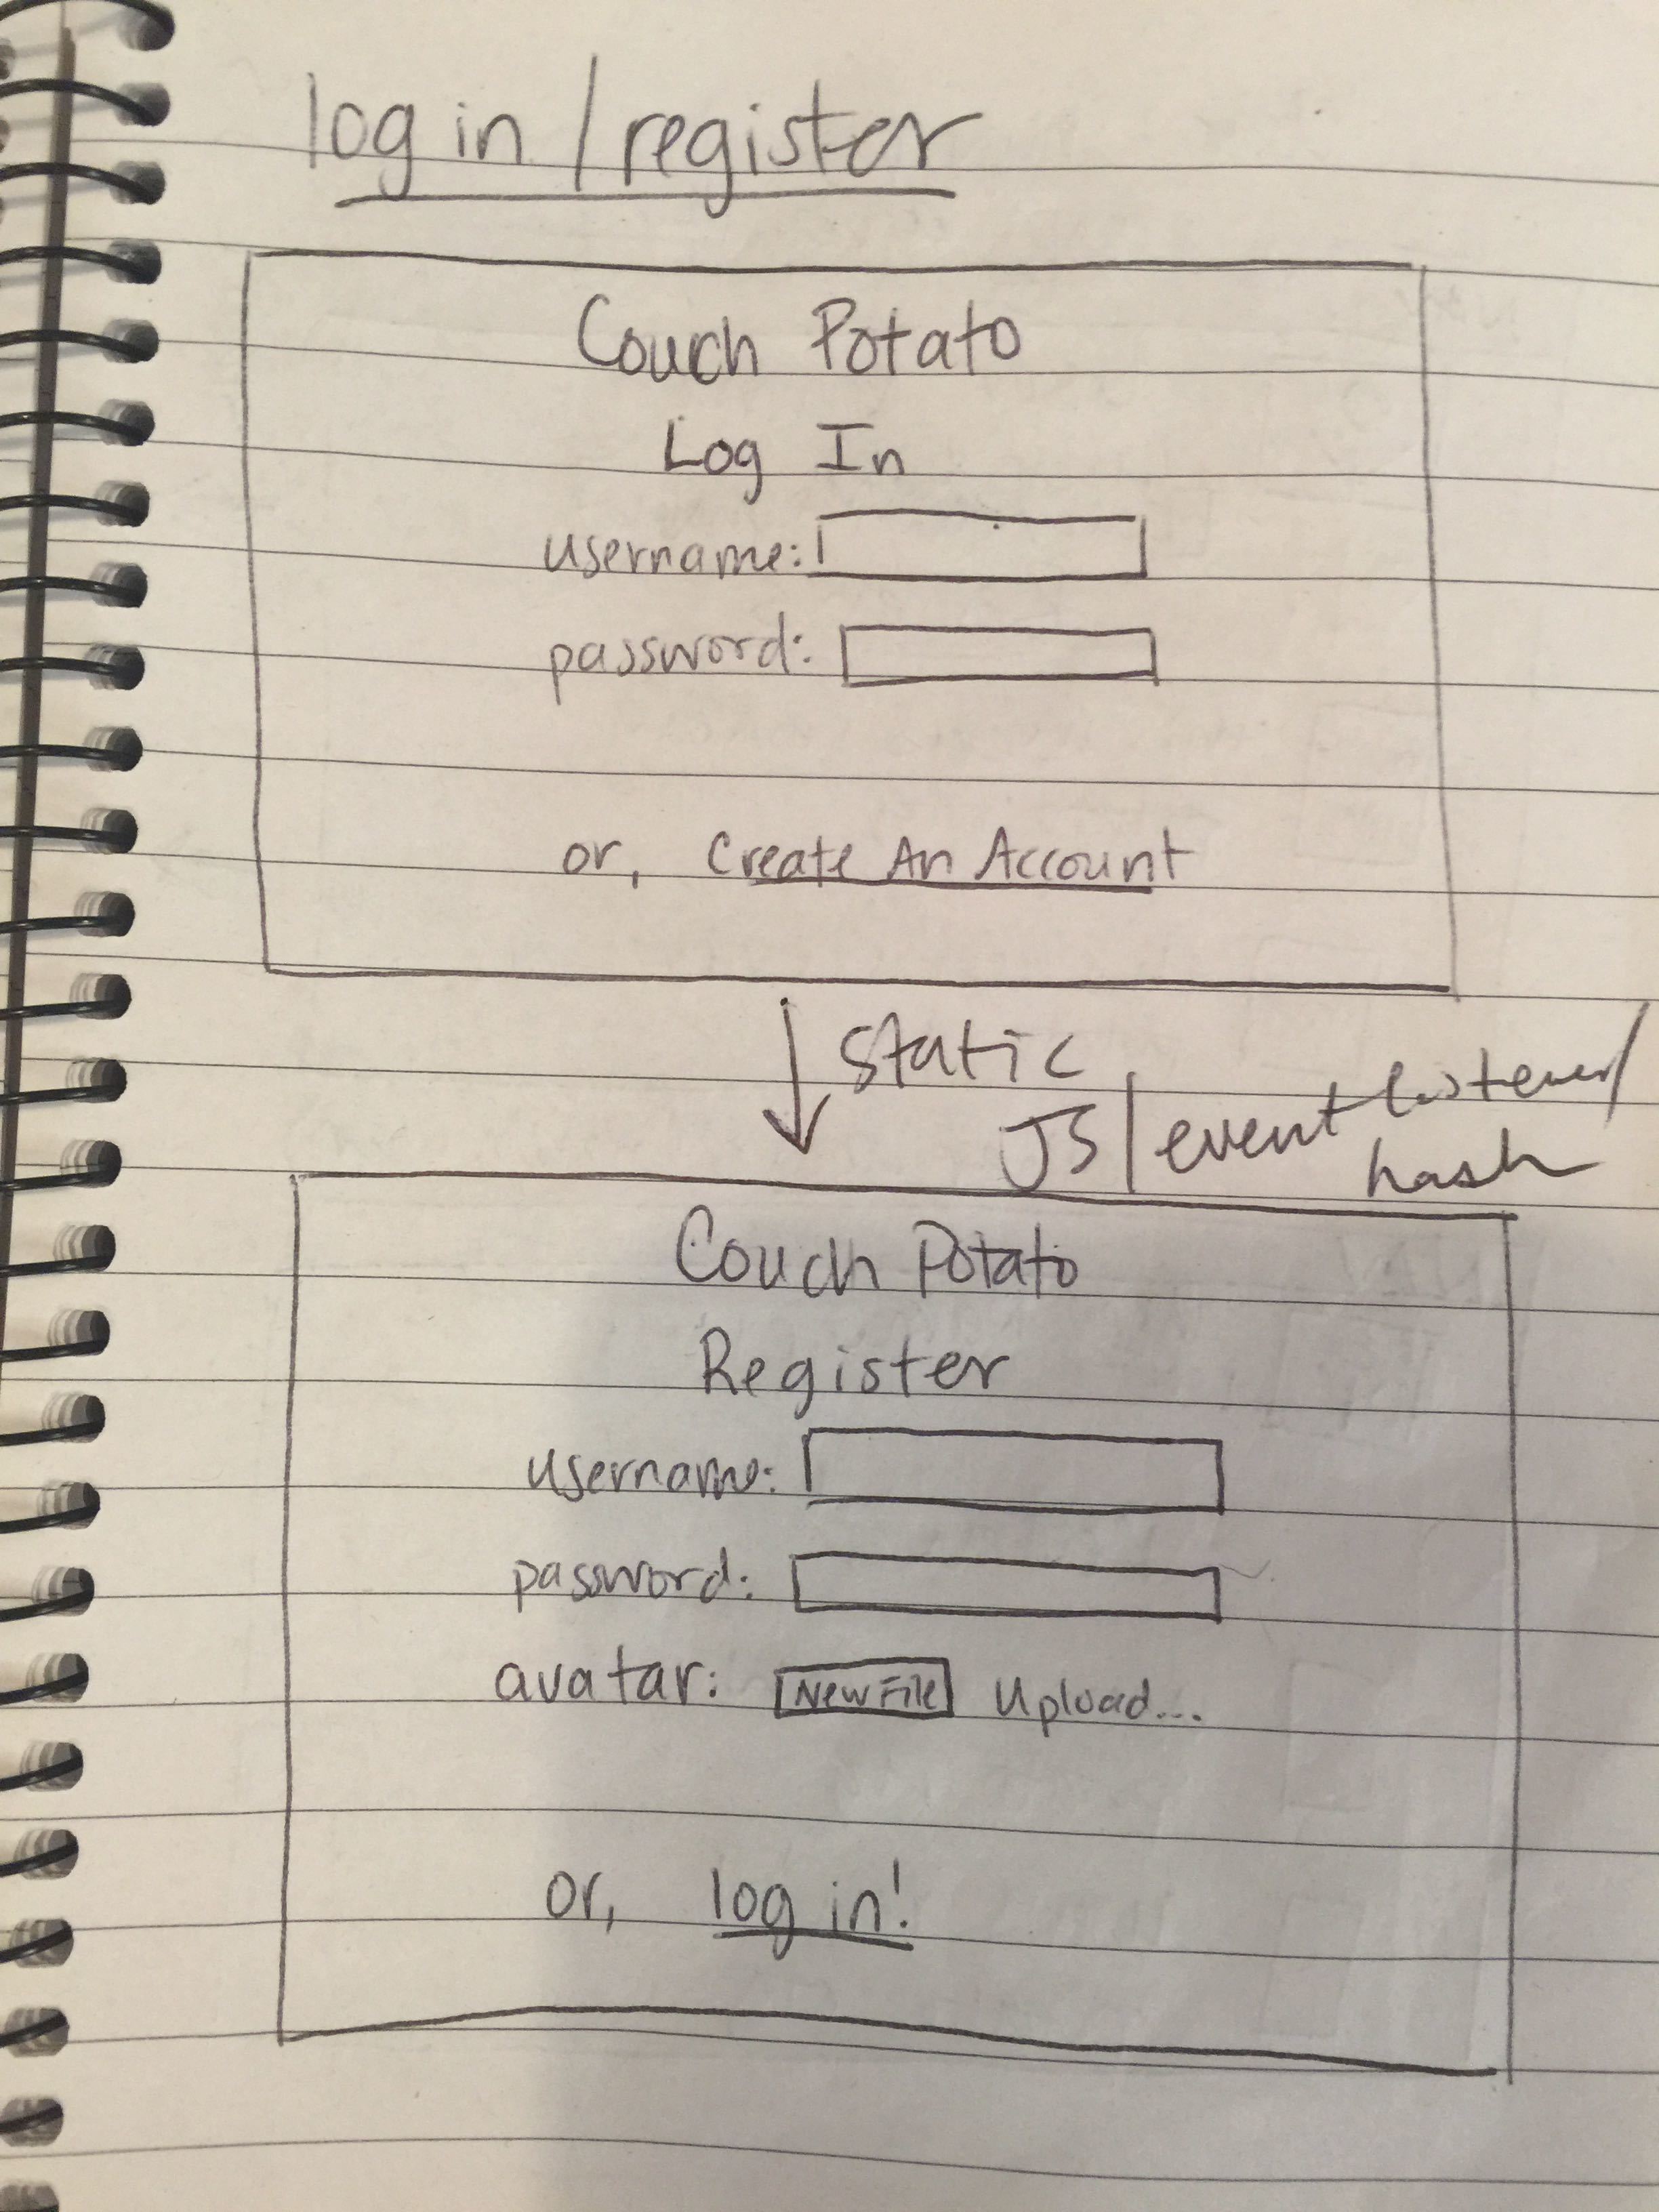 log in / register
Couch Potato
Log In
username:
password:
or, Create An Account
static
JS/event listener/
hash
Couch Potato
Register
username:
password:
avatar: New File Upload...
or, log in!